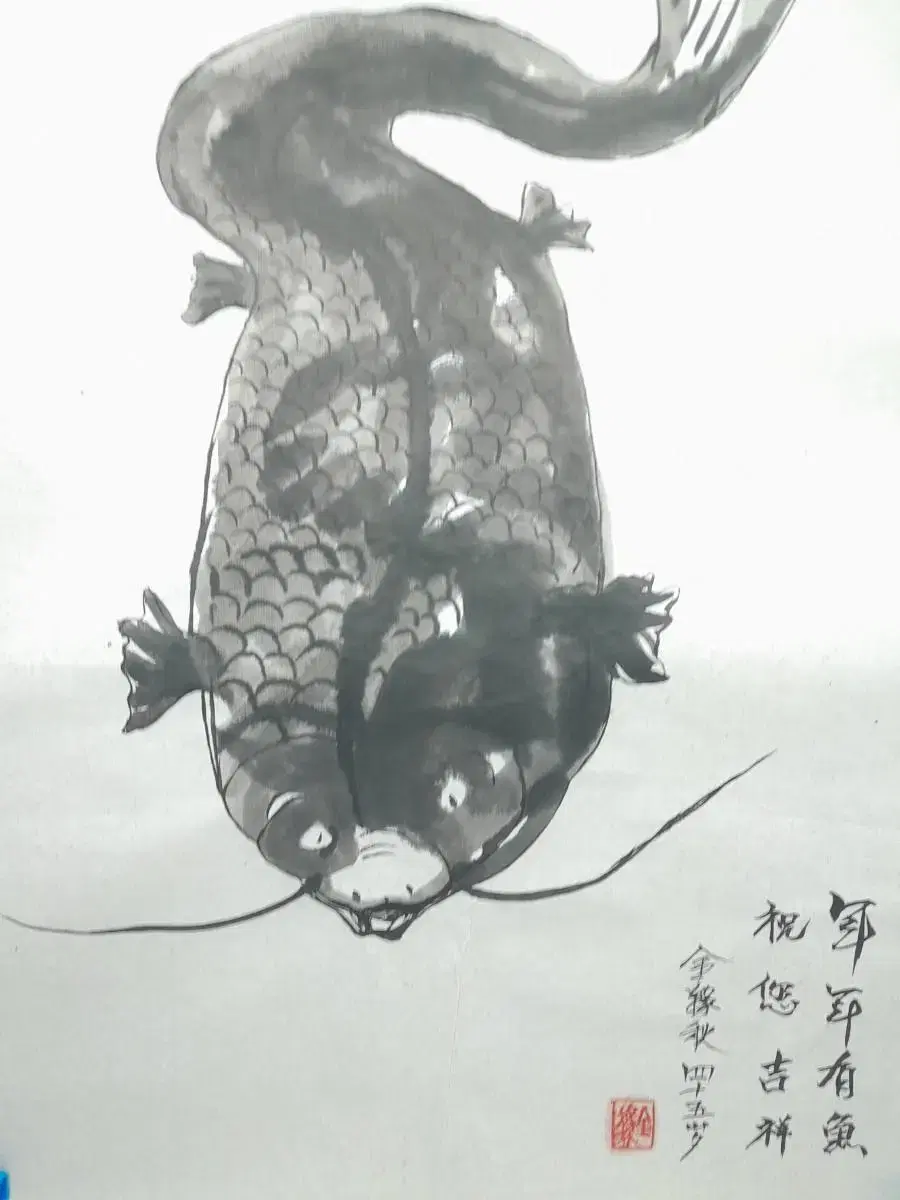 年年有魚
祝您吉祥
金秋四十五岁